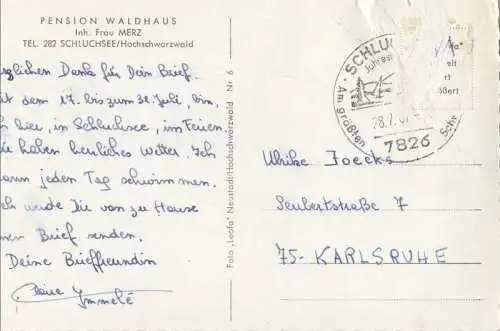 PENSION WALDHAUS
Inh. Frau MERZ
TEL. 282 SCHLUCHSEE/Hochschwarzwald
rzlichen Dank für Dein Brief.
it dem 17. bis zum 31. Juli, bin
h hier, in Schluchsee, im Ferien.
ir haben herrliches Wetter. Ich
ann jeden Tag schwimmen.
ch werde Dir von zu Hause
nen Brief senden.
Deine Brieffreundin
Immelé
Foto „Leofa" Neustadt/Hochschwarzwald Nr. 6
SCHLUC
Am größten
Schw
28.7.
7826
Ulrike Joecks
Seubertstraße 7
75-KARLSRUHE